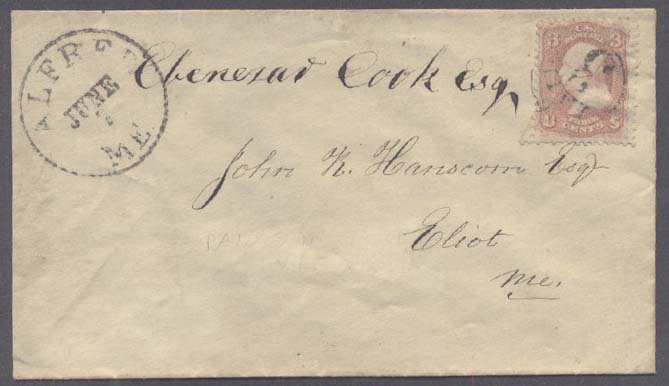 ALFRED
JUNE
ME.
Ebenezar Cook Esq,
John K. Hanscom Esq
Eliot
Me.
3 3
U S
CENTS